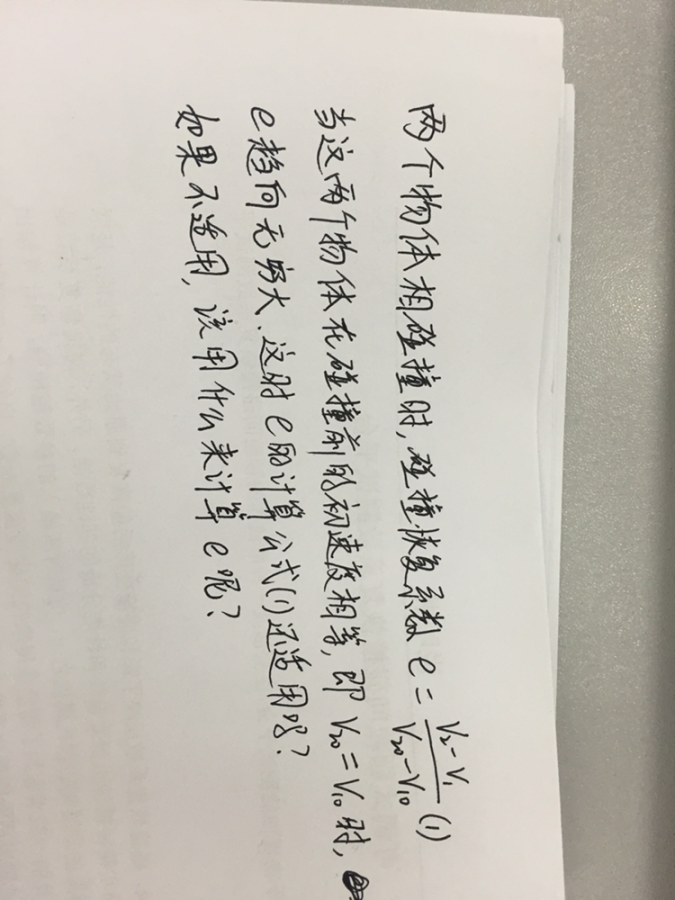 两个物体相碰撞时,碰撞恢复系数 e = \frac{V₂-V₁}{V₂₀-V₁₀} (1)
当这两个物体在碰撞前的初速度相等,即 V₂₀=V₁₀时,
e趋向无穷大、这时e的计算公式(1)还适用吗?
如果不适用,该用什么来计算e呢?